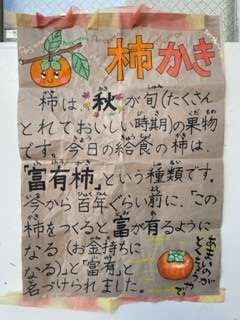 柿 かき
柿は、秋が旬(たくさん
とれておいしい時期)の果物
です。今日の給食の柿は、
「富有柿」という種類です。
今から百年ぐらい前に、「この
柿をつくると富が有るように
なる(お金持ちに
なる)」と「富有」と
名づけられました。